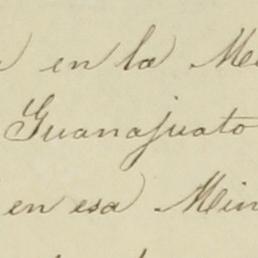 en la
Guanajuato
en esa Min